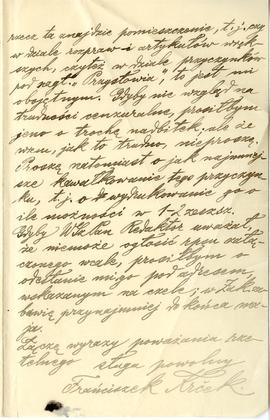 rzecz ta znajdzie pomieszczenie, t. j., czy
w dziale rozpraw i artykułów więk-
szych, czyteż w dziale przyczynków
pod nagł. "Przysłowia", to jest mi
obojętnym. Gdyby nie wzgląd na
trudności cenzuralne, prosiłbym
jeno o trochę nadbitek; ale że
wiem, jak to trudno, nieproszę.
Proszę natomiast o jak najmniej-
sze kawałkowanie tego przyczyn-
ku, t. j. o wydrukowanie go o
ile możności w 1-2 zeszsz.
Gdyby WPan Redaktor uważał,
że niemoże ogłosić rpsu załą-
czonego wcale, prosiłbym o
odesłanie mi go pod adresem,
wskazanym na czele; w Zak.
bawię przynajmniej do końca ma-
ja.
Łączę wyrazy poważania rze-
telnego sługa powolny
Franciszek Krček